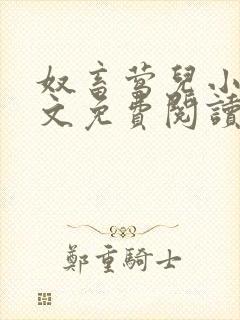 奴畜莺兒小
文免費閱讀
鄭重騎士